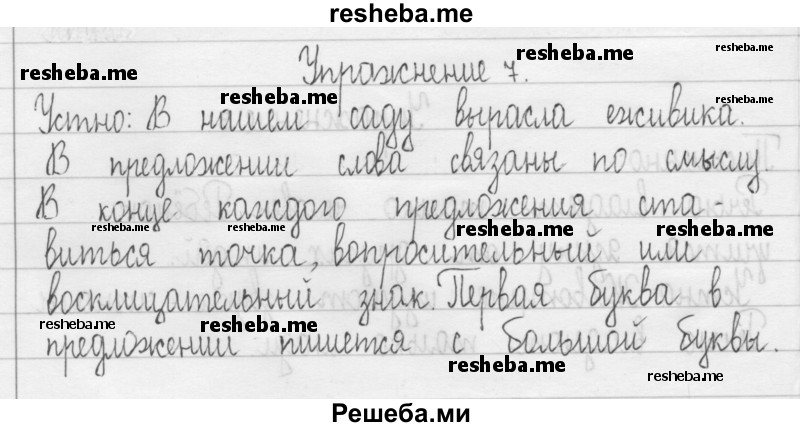 resheba.me
Упражнение 7.
resheba.me
resheba.me
resheba.me
resheba.me
Устно: В нашем саду выросла ежевика.
resheba.me
В предложении слова связаны по смыслу
В конце каждого предложения ста-
resheba.me
resheba.me
resheba.me
виться точка, вопросительный или
восклицательный знак. Первая буква в
resheba.me
resheba.me
предложении пишется с большой буквы.
resheba.me
resheba.me
Решеба.ми